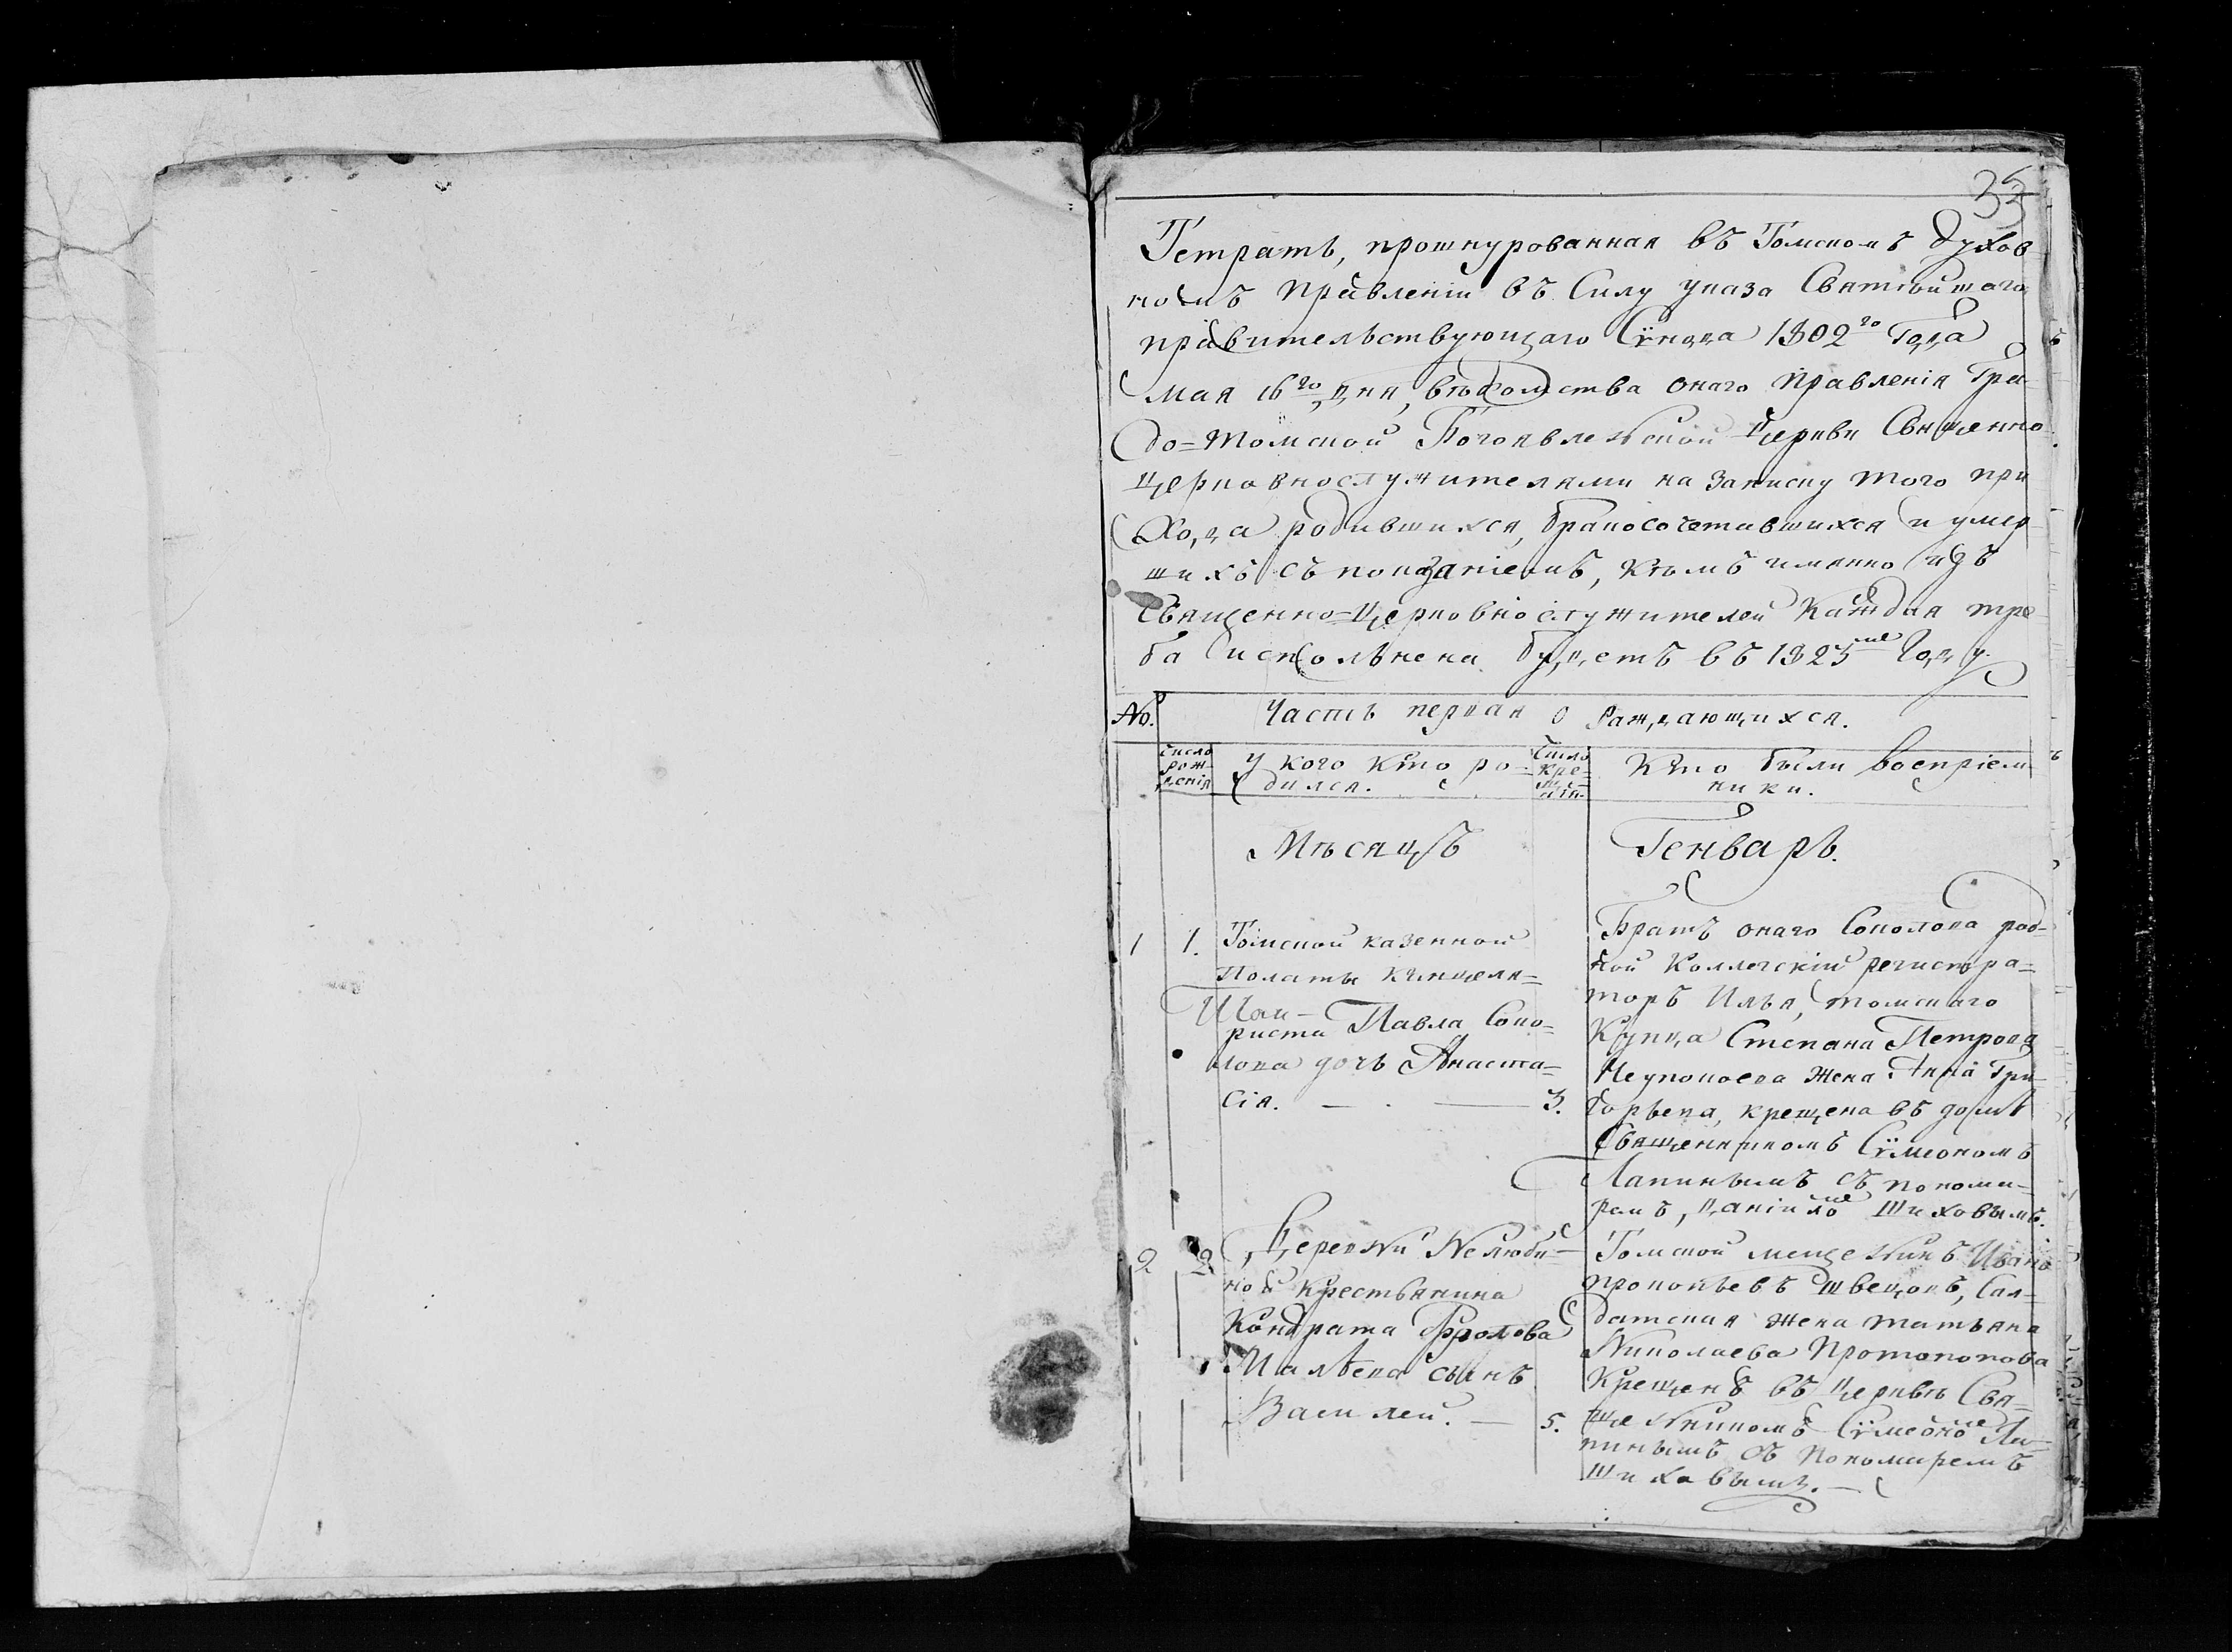 33
Тетрать, прошнурованная въ Томскомъ духов-
номъ правленіи въ Силу указа Святѣйшаго
правительствующаго Сѵнода 1802го Года
мая 16го дня, вѣдомства онаго правленія Гра-
до=Томской Богоявленской Церкви Священно
церковнослужителями на записку того при
хода родившихся, бракосочетавшихся и умер-
шихъ съ показаніемъ, кѣмъ имянно изъ
Священно=Церковнослужителей каждая тре-
ба исполнена будетъ въ 1825мъ Году.
No. Часть первая о Раждающихся.
Число рож-денія
У кого кто ро-
дился.
Число кре-щенія.
Кто были воспріем-
ники.
Мѣсяцъ Генварь.
1 1. Томской казенной
Полаты канцеля-
риста Павла Соко-
лова дочь Анаста-
сія. — . — 3.
Братъ онаго Соколова род-
ной Коллегскій регистра-
торъ Илья, томскаго
Купца Степана Петрова
жена Анна Гри-
горьева, крещена въ домѣ
Священникомъ Сѵмеономъ
Лапинымъ съ понома-
ремъ, Даніиломъ Шиховымъ.
2 2 Деревни Нелюби-
ной крестьянина
Кондрата Фролова
сынъ
Василей. — 5.
Томской мещенинъ Иванъ
прокопьевъ швецовъ, Сал-
датская жена татьяна
Николаева Протопопова
Крещенъ въ Церкви Свя-
щенникомъ Сѵмеономъ Ла-
пинымъ съ Пономаремъ
Шиховымъ. —